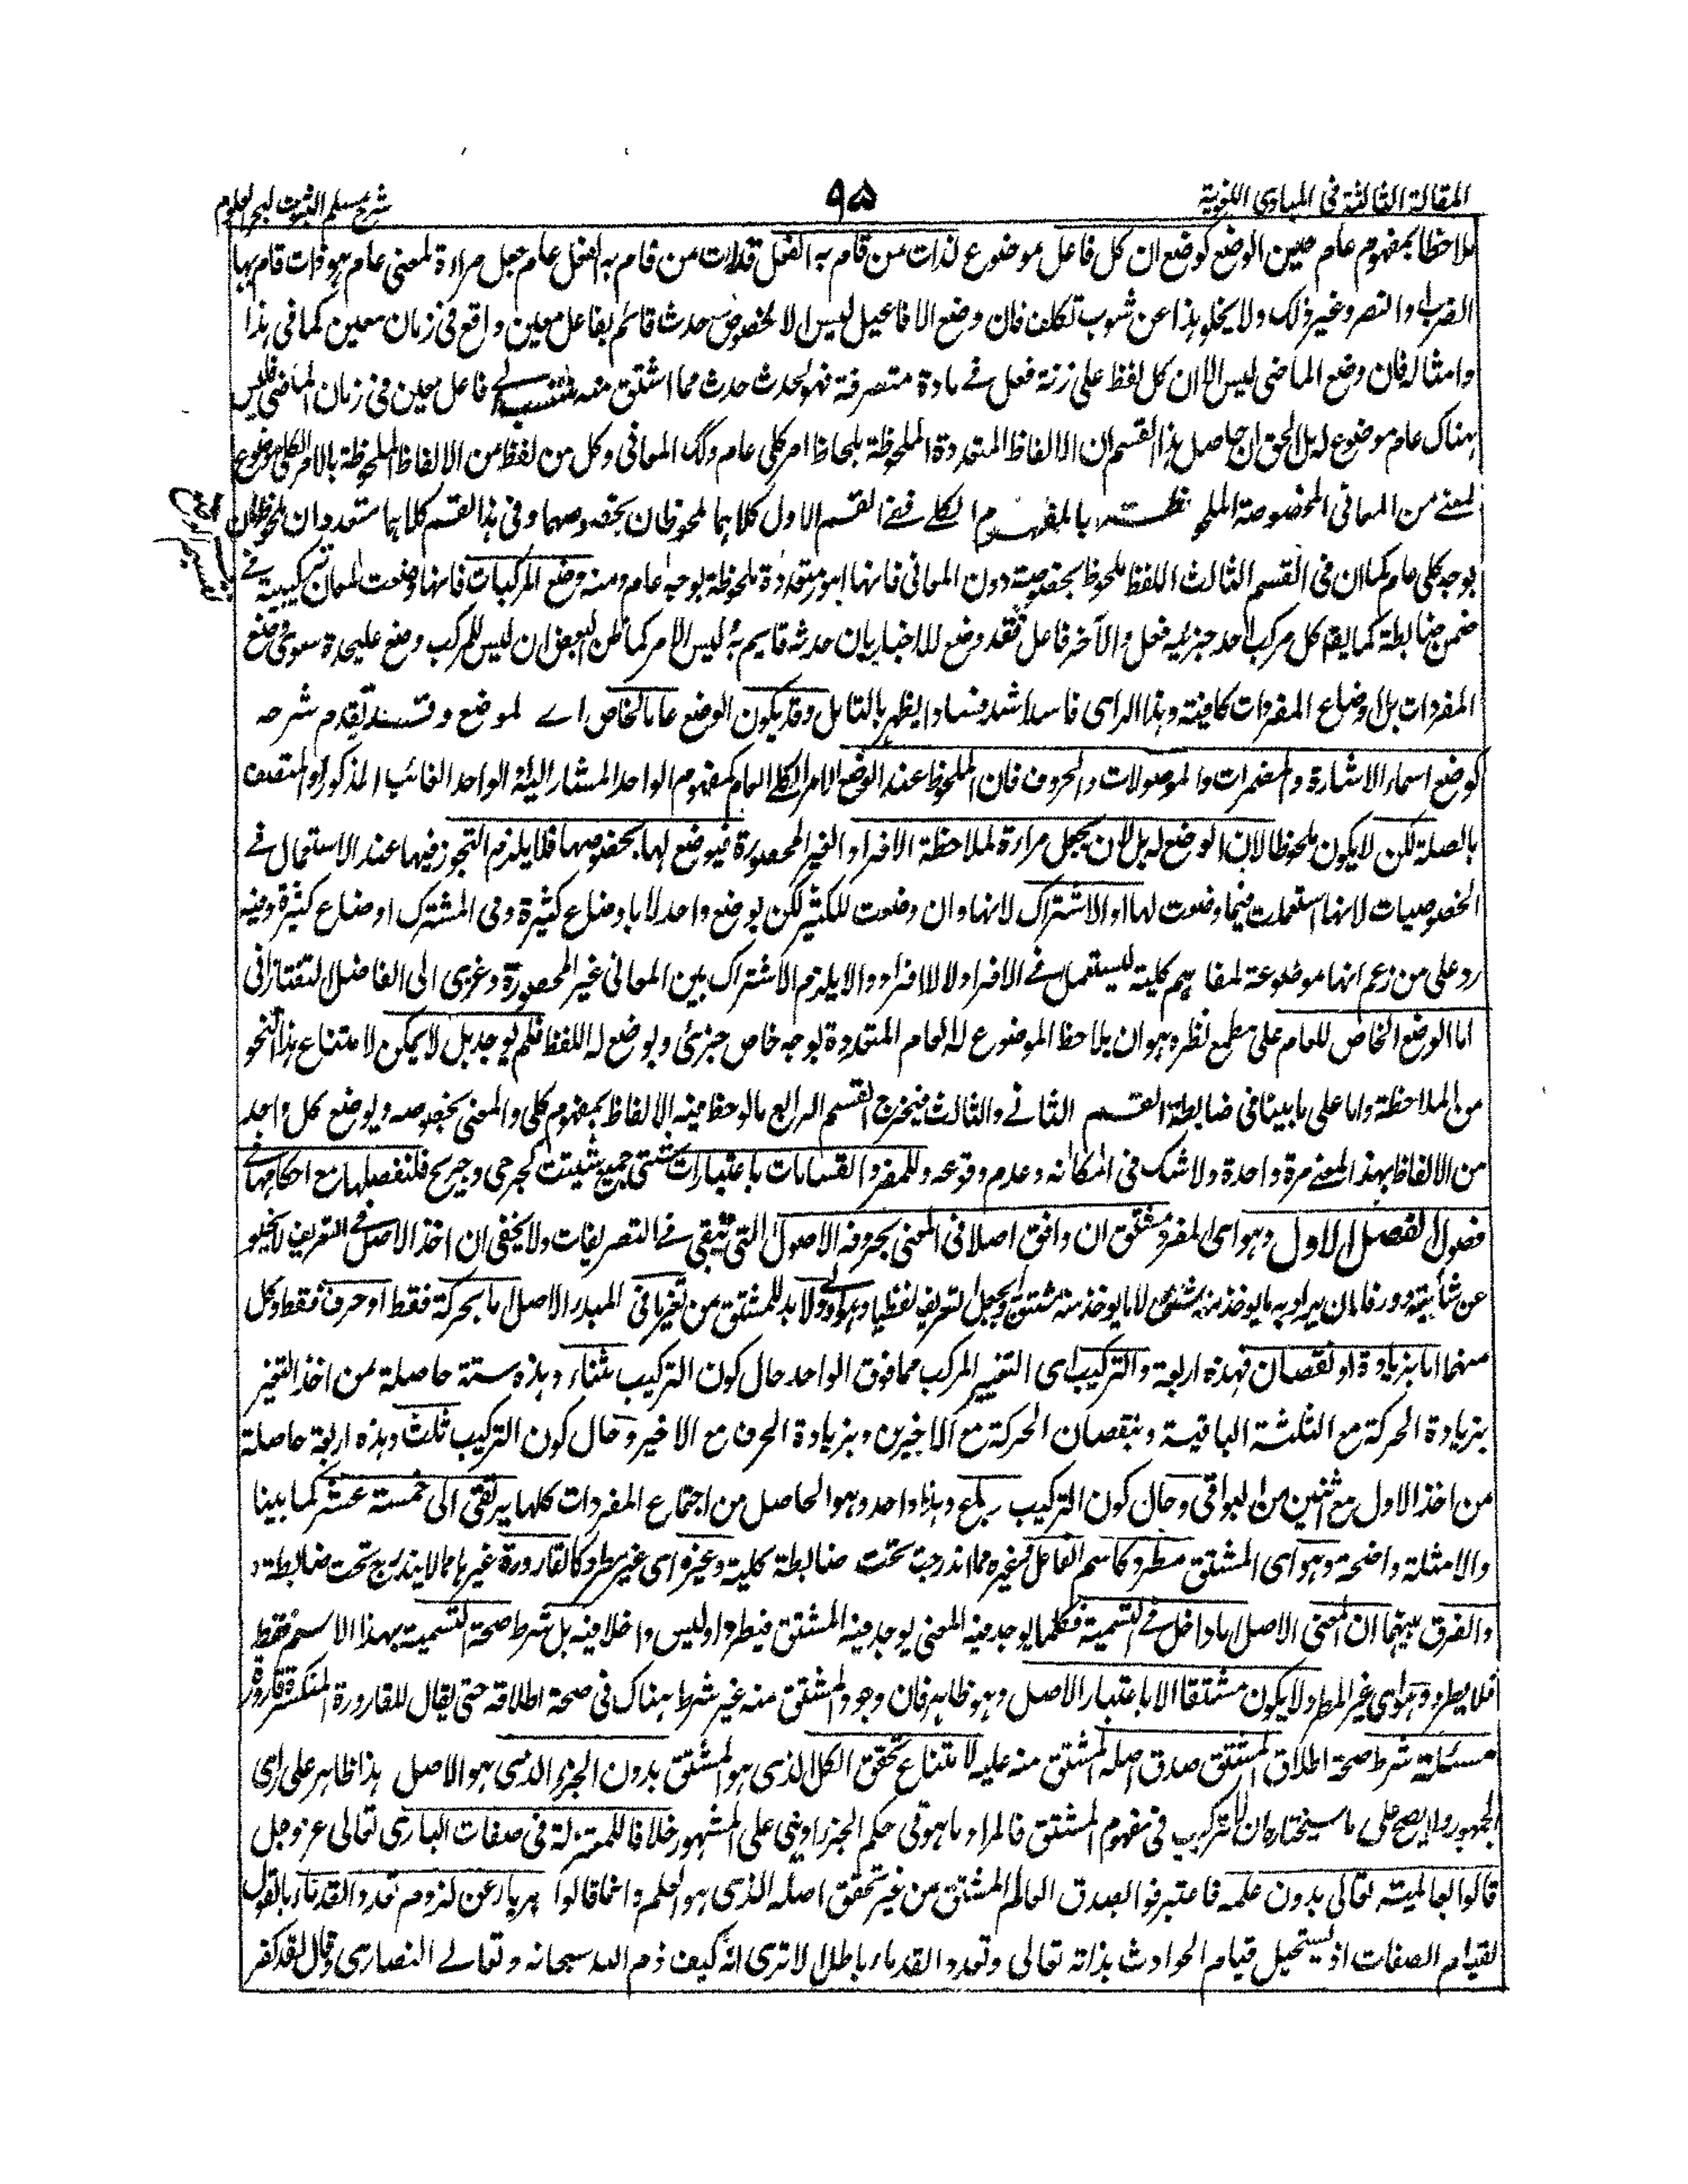 المقالة الثالثة فى المبادى اللغوية
٩٥
شرح مسلم الثبوت لبحر العلوم
ملاحظا بمفهوم عام حين الوضع كوضع ان كل فاعل موضوع لذات من قام به الفعل فذات من قام به الفعل عام جعل مراءة لمعنى عام هو ذات قام بها
الضرب او النصر وغير ذلك ولا يخلو هذا عن شوب تكلف فان وضع الافاعيل ليس الا لخصوص حدث قائم بفاعل معين واقع فى زمان معين كما فى هذا
وامثاله فان وضع الماضى ليس الا ان كل لفظ على زنة فعل فے مادة متصرفة فهو لحدث حدث مما اشتق منه منتسب الے فاعل معين فى زمان الماضى فليس
هناك عام موضوع له بل الحق ان حاصل هذا القسم ان الالفاظ المتعددة الملحوظة بلحاظ امر كلى عام وكك المعانى وكل من لفظ من الالفاظ الملحوظة بالامر الكلى موضوع
لمعنے من المعانى المخصوصة الملحوظة بالمفهوم الكلے ففے القسم الاول كلاهما ملحوظان بخصوصهما وفى هذا القسم كلاهما متعددان ملحوظان
بوجه كلى عام كما ان فى القسم الثالث اللفظ ملحوظ بخصوصه دون المعانى فانها امور متعددة ملحوظة بوجه عام ومنه وضع المركبات فانها وضعت لمعان تركيبية فے
ضمن ضابطة كما يقال كل مركب احد جزئيه فعل والآخر فاعل فقد وضع للاخبار بان حدثه قايم به وليس الامر كما ظن البعض ان ليس للمركب وضع عليحدة سوى وضع
المفردات بل اوضاع المفردات كافية وهذا الراى فاسد اشد فسادا يظهر بالتامل وقد يكون الوضع عاما لخاص اے لموضوع وقد تقدم شرحه
كوضع اسماء الاشارة والمضمرات والموصولات والحروف فان الملحوظ عند الوضع الامر الكلے العام كمفهوم الواحد المشار اليه او الواحد الغائب المذكور او المتصف
بالصلة لكن لا يكون ملحوظا لان الوضع له بل لان يجعل مراءة لملاحظة الافراد الغير المحصورة فيوضع لها بخصوصها فلا يلزم التجوز فيها عند الاستعمال فے
الخصوصيات لانها استعملت فيما وضعت لها او الاشتراك لانها وان وضعت للكثير لكن بوضع واحد لا باوضاع كثيرة وفى المشترك اوضاع كثيرة وفيه
رد على من زعم انها موضوعة لمفاهيم كلية ليستعمل فے الافراد لا للافراد والا يلزم الاشتراك بين المعانى غير المحصورة وعزى الى الفاضل التفتازانى
اما الوضع الخاص للعام على مطمع نظره وهو ان يلاحظ الموضوع له العام المتعددة بوجه خاص جزئى ويوضع له اللفظ فلم يوجد بل لا يمكن لامتناع هذا النحو
من الملاحظة واما على ما بينا فى ضابطة القسم الثانے والثالث فيخرج القسم الرابع ما لوحظ فيه الالفاظ بمفهوم كلى والمعنى بخصوصه ويوضع كل واحد
من الالفاظ بهذا المعنے مرة واحدة ولا شك فى امكانه وعدم وقوعه وللمفرد انقسامات باعتبارات شتى جميع شتيت كجرحى وجريح فلنفصلها مع احكامها فے
فصول الفصل الاول وهو اى المفرد مشتق ان وافق اصلا فى المعنى بحروفه الاصول التى تبقى فے التصريفات ولا يخفى ان اخذ الاصل فے التعريف لا يخلو
عن شائبة دور فاما ان يراد به ما يوخذ منه شئ لا ما يوخذ منه مشتق او يجعل التعريف لفظيا ولا بد للمشتق من تغير ما فى المبدء الاصل اما بحركة فقط او حرف فقط وكل
منهما اما بزيادة او نقصان فهذه اربعة والتركيب اى التغيير المركب مما فوق الواحد حال كون التركيب ثناء وهذه ستة حاصلة من اخذ التغير
بزيادة الحركة مع الثلثة الباقية وبنقصان الحركة مع الاخيرين وبزيادة الحرف مع الاخير وحال كون التركيب ثلث وهذه اربعة حاصلة
من اخذ الاول مع اثنين من البواقى وحال كون التركيب رباع وهذا واحد وهو الحاصل من اجتماع المفردات كلها يرتقى الى خمسة عشر كما بينا
والامثلة واضحة وهو اى المشتق مطرد كاسم الفاعل وغيره مما اندرجت تحت ضابطة كلية وغيره اى غير مطرد كالقارورة وغيرها مما لا يندرج تحت ضابطة
والفرق بينهما ان المعنى الاصل اما داخل فے التسمية فكلما يوجد فيه المعنى يوجد فيه المشتق فيطرد او ليس داخلا فيه بل شرط صحة التسمية بهذا الاسم فقط
فلا يطرد وهو اى غير المطرد لا يكون مشتقا الا باعتبار الاصل وهو ظاهر فان وجود المشتق منه غير شرط هناك فى صحة اطلاقه حتى يقال للقارورة المنكسرة قارورة
مسئلة شرط صحة اطلاق المشتق صدق اصله المشتق منه عليه لامتناع تحقق الكل الذى هو المشتق بدون الجزء الذى هو الاصل هذا ظاهر على راى
الجمهور ولا يصح على ما سيختاره ان لا تركيب فى مفهوم المشتق فالمراد ما هو فى حكم الجزء او بنى على المشهور خلافا للمعتزلة فى صفات البارى تعالى عز وجل
قالوا بعالميته تعالى بدون علمه فاعترفوا بصدق العالم المشتق من غير تحقق اصله الذى هو العلم وانما قالوا هربا عن لزوم تعدد القدماء بالقول
لقيام الصفات اذ يستحيل قيام الحوادث بذاته تعالى وتعدد القدماء باطل الا ترى انه كيف ذم الله سبحانه وتعالے النصارى وقال لقد كفر